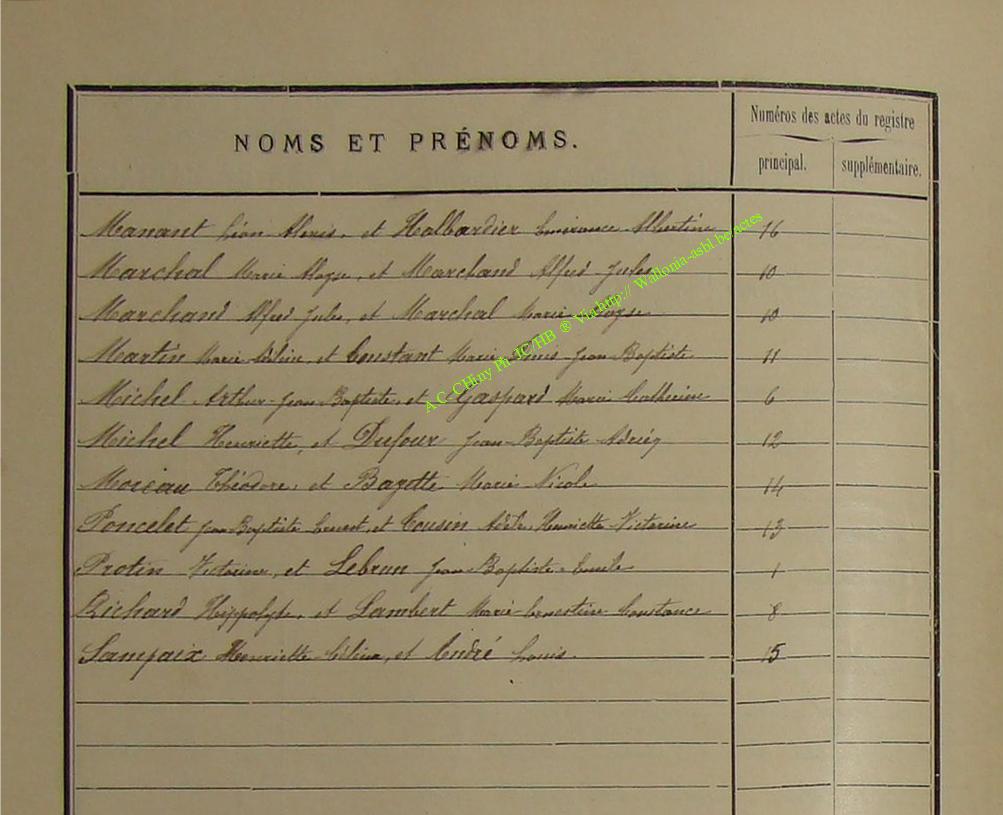 NOMS ET PRÉNOMS.
Numéros des actes du registre
principal. supplémentaire.
Manant Léon Alexis, et Halbardier Albertine 16
Marchal Marie et Marchand Alfred Jules 10
Marchand Alfred Jules, et Marchal Marie 10
Martin Marie et Constant Marie Jean Baptiste 11
Michel Arthur Jean Baptiste, et Gaspard Marie Catherine 6
Michel Henriette, et Dufour Jean-Baptiste 12
Moreau Théodore, et Bazette Marie Nicole 14
Poncelet Jean Baptiste Ernest, et Cousin Adèle Henriette Victorine 13
Protin Victorine, et Lebrun Jean Baptiste Emile 1
Richard Hippolyte, et Lambert Marie Ernestine Constance 8
Sampaix Henriette Célina, et André Louis. 15
A C- CHiny Ph JC/HB ® Via http:// Wallonia-asbl.be/actes